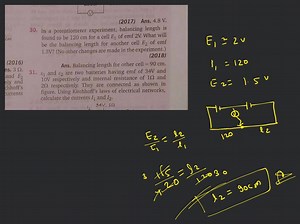 (2017) Ans. 4.8 V.
30. In a potentiometer experiment, balancing length is
found to be 120 cm for a cell E₁ of emf 2V. What will
be the balancing length for another cell E₂ of emf
1.5V? (No other changes are made in the experiment.)
(2018)
Ans. Balancing length for other cell = 90 cm.
31. ε₁ and ε₂ are two batteries having emf of 34V and
10V respectively and internal resistance of 1Ω and
2Ω respectively. They are connected as shown in
figure. Using Kirchhoff's laws of electrical networks,
calculate the currents I₁ and I₂.
(2016)
E₁ = 2V
l₁ = 120
E₂ = 1.5V
120 l₂
E₂/E₁ = l₂/l₁
l₂ = 90cm